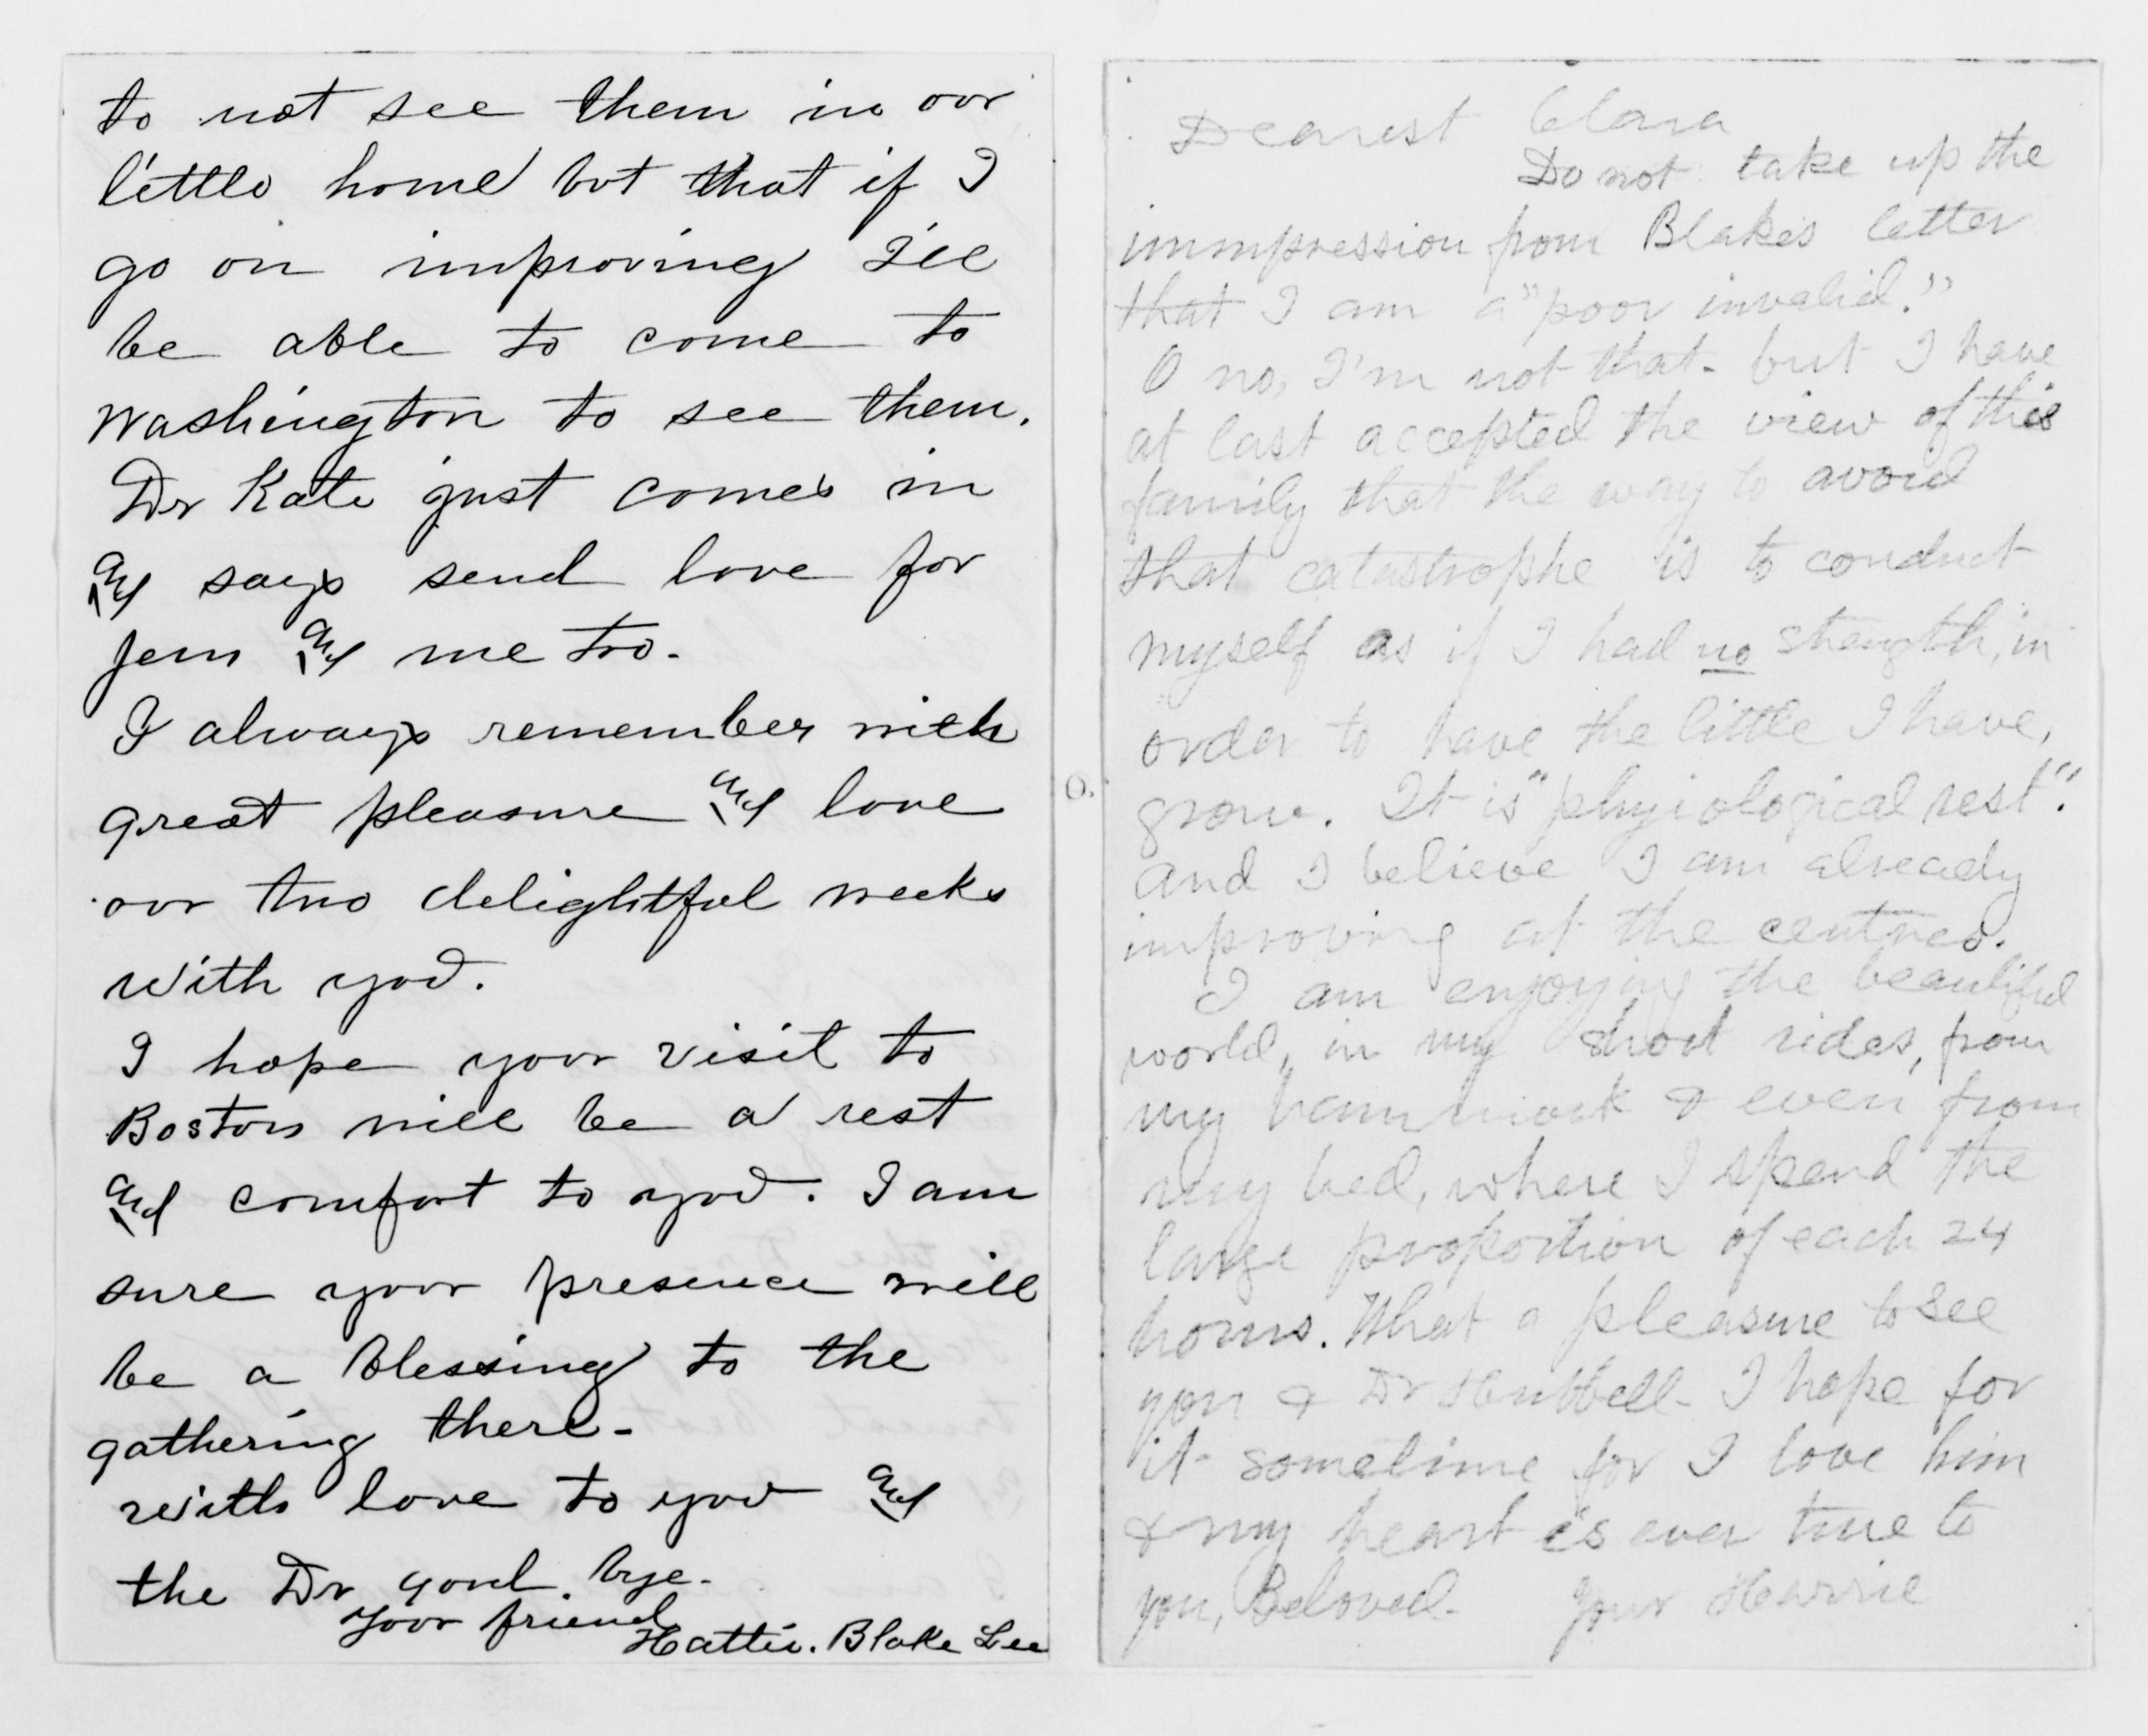 to not see them in our
little home but that if I
go on improving I'll
be able to come to
Washington to see them.
Dr Kate just comes in
and says send love for
Jem and me too.
I always remember with
great pleasure and love
our two delightful weeks
with you.
I hope your visit to
Boston will be a rest
and comfort to you. I am
sure your presence will
be a blessing to the
gathering there -
With love to you and
the Dr good bye -
Your friend
Hattie. Blake Lee
Dearest Clara
Do not take up the
immpression from Blake's letter
that I am a "poor invalid."
O no, I'm not that - but I have
at last accepted the view of this
family that the way to avoid
that catastrophe is to conduct
myself as if I had no strength, in
order to have the little I have,
grow. It is "phyiological rest".
and I believe I am already
improving at the centres.
I am enjoying the beautiful
world, in my short rides, from
my hammock & even from
my bed, where I spend the
large proportion of each 24
hours. What a pleasure to see
you & Dr Hubbell - I hope for
it sometime for I love him
& my heart is ever true to
you, Beloved. Your Harrie